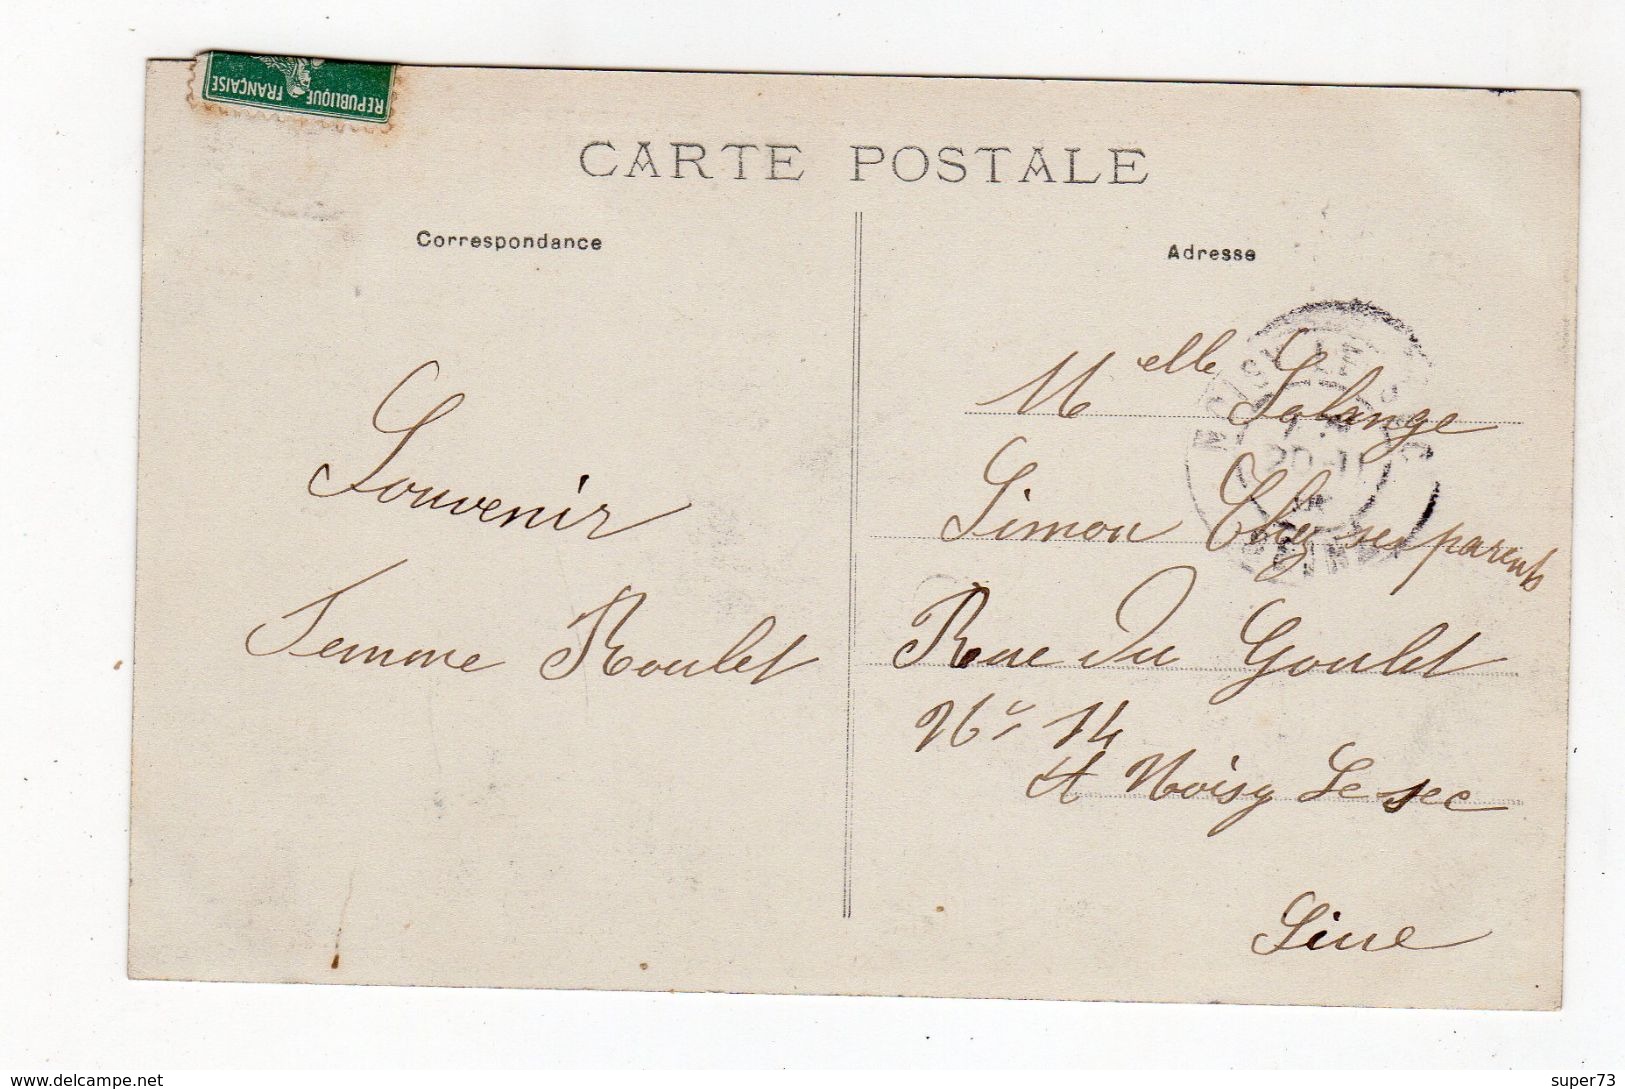 REPUBLIQUE FRANÇAISE
CARTE POSTALE
Correspondance
Souvenir
Femme Roulet
Adresse
Melle Solange
Simon Chez ses parents
Rue Du Goulet
No 14
A Noisy Le sec
Seine
www.delcampe.net
super73